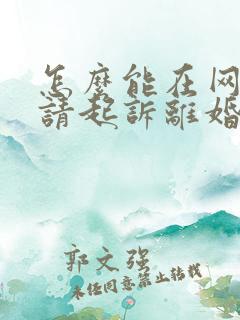 怎麼能在网
請起訴離婚
郭文强
未经同意禁止转载